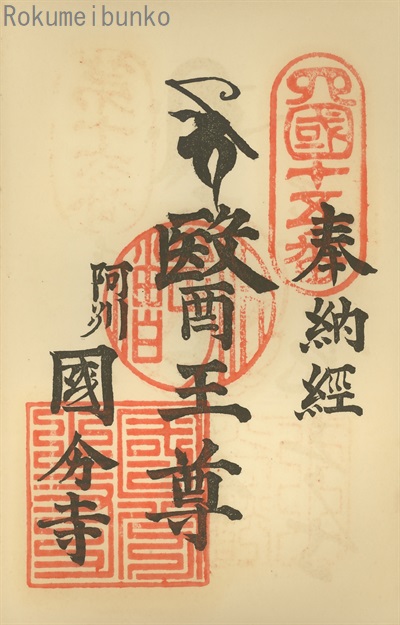 Rokumeibunko
四國十五番
奉納經
醫王尊
阿州
國分寺